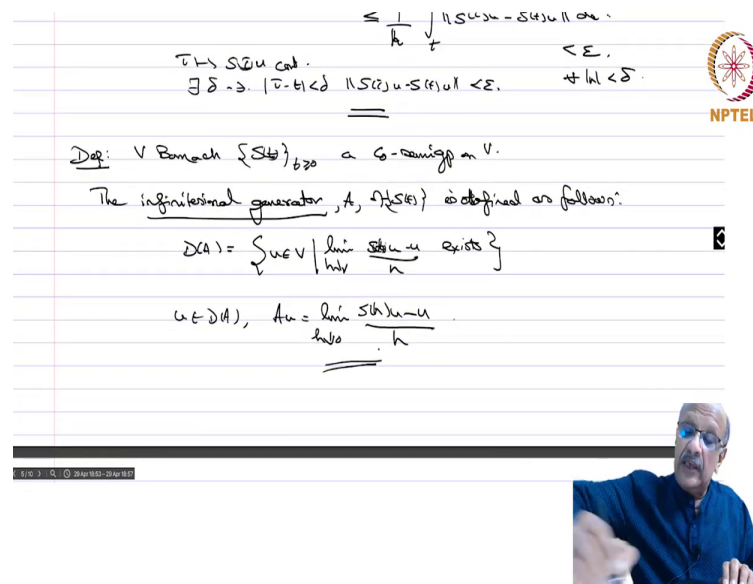 ≤ 1/h ∫_t ‖S(τ)u - S(t)u‖ dτ.
τ ↦ S(τ)u cont. < ε.
∃ δ → |τ-t| < δ ‖S(τ)u - S(t)u‖ < ε. ∀ |h| < δ.
NPTEL
Def: V Banach {S(t)}_{t≥0} a C₀-semigp on V.
The infinitesimal generator, A, of {S(t)} is defined as follows:
D(A) = {u ∈ V | lim_{h↓0} (S(h)u - u)/h exists}
u ∈ D(A), Au = lim_{h↓0} (S(h)u - u)/h.
5/10 29 Apr 18:53 – 29 Apr 18:57